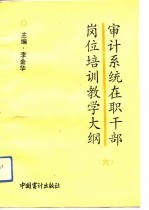 审计系统在职干部
岗位培训教学大纲
〈六〉
主编·李金华
中国审计出版社